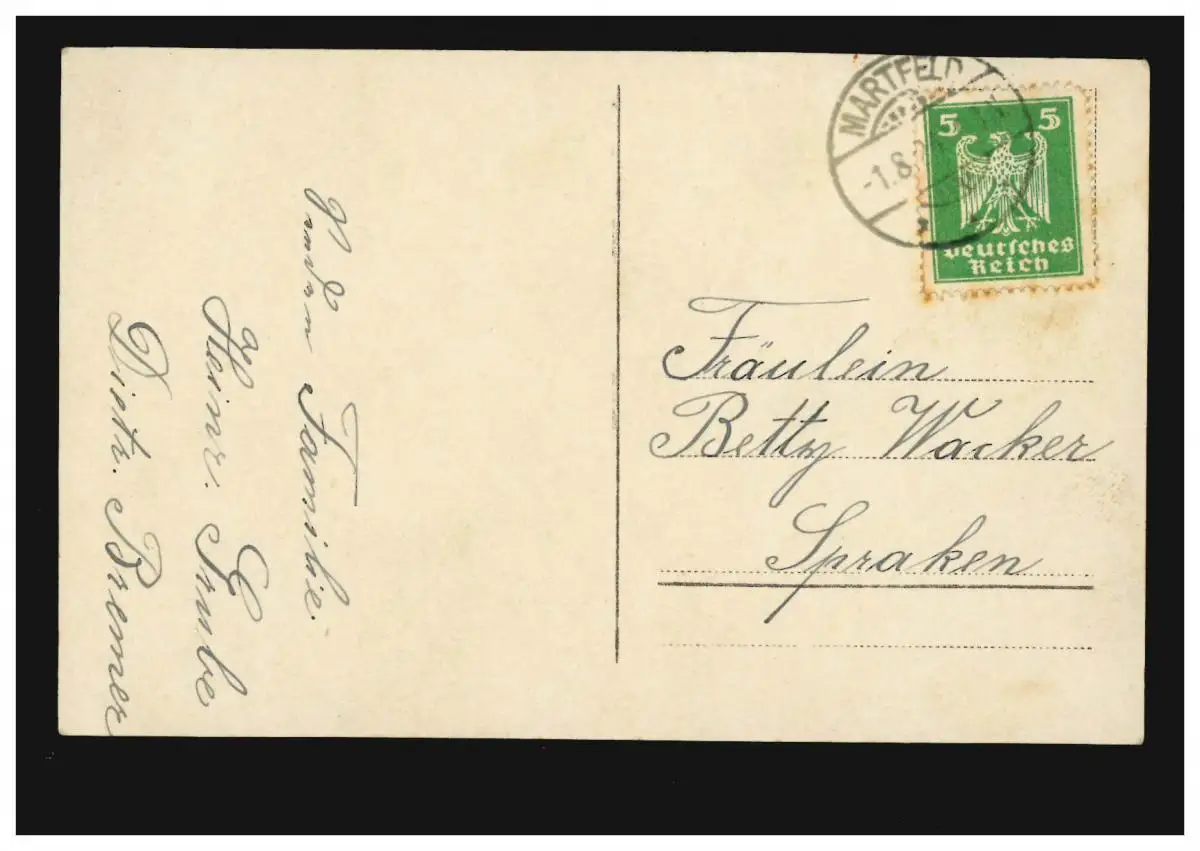 MARTFELD
-1.8.2
5 5
Deutsches
Reich
Fräulein
Betty Wacker
Spraken
Familie.
Heinr. Grube
Dietr. Bremer